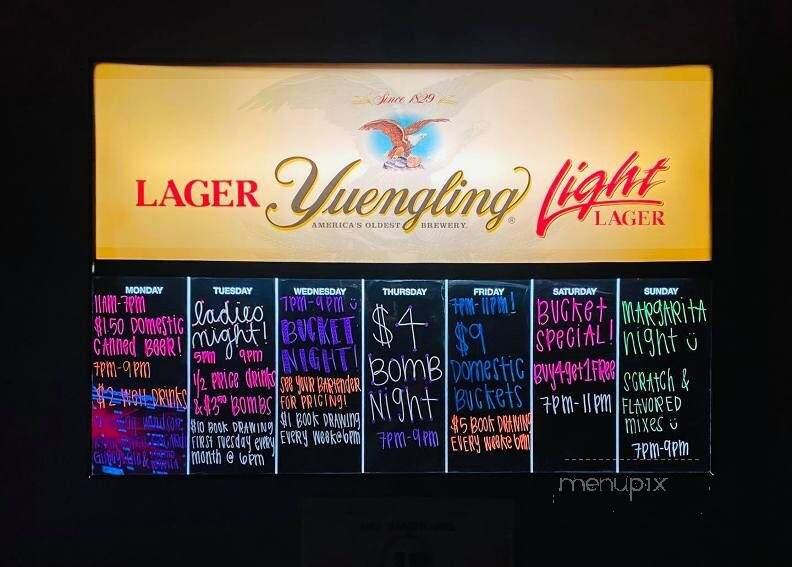 Since 1829
LAGER Yuengling® Light
AMERICA'S OLDEST BREWERY.
LAGER
MONDAY
11AM-7PM
$1.50 DOMESTIC
CANNED BEER!
7PM-9PM
$2 WELL DRINKS
TUESDAY
ladies
night!
5pm 9pm
1/2 PRICE drinks
& $3.00 BOMBS
$10 BOOK DRAWING
FIRST TUESDAY EVERY
month @ 6pm
WEDNESDAY
7PM-9PM
BUCKET
NIGHT!
SEE YOUR BARTENDER
FOR PRICING!
$1 BOOK DRAWING
EVERY WEEK@6pm
THURSDAY
$4
BOMB
Night
7PM-9PM
FRIDAY
7PM-11PM!
$9
DOMESTIC
BUCKETS
$5 BOOK DRAWING
EVERY WEEK@6pm
SATURDAY
BUCKET
SPECIAL!
Buy4get1FREE
7PM-11PM
SUNDAY
MARGARITA
night
SCRATCH &
FLAVORED
mixes
7PM-9PM
menupix